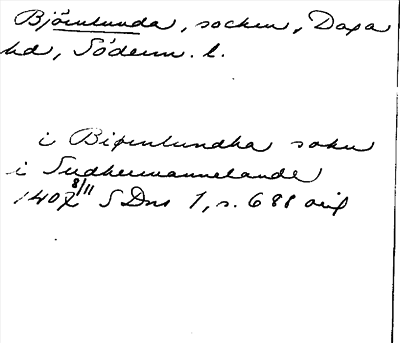 Björnlunda, socken, Daga
hd, Söderm. l.
i Biørnlundha sokn
i Sudhermannelande
1407 8/11 SDns 1, s. 688 orig